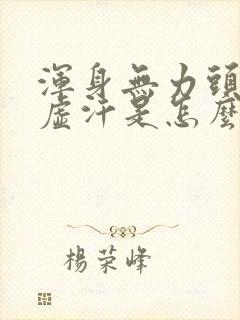 渾身無力頭
虛汗是怎麼
楊荣峰